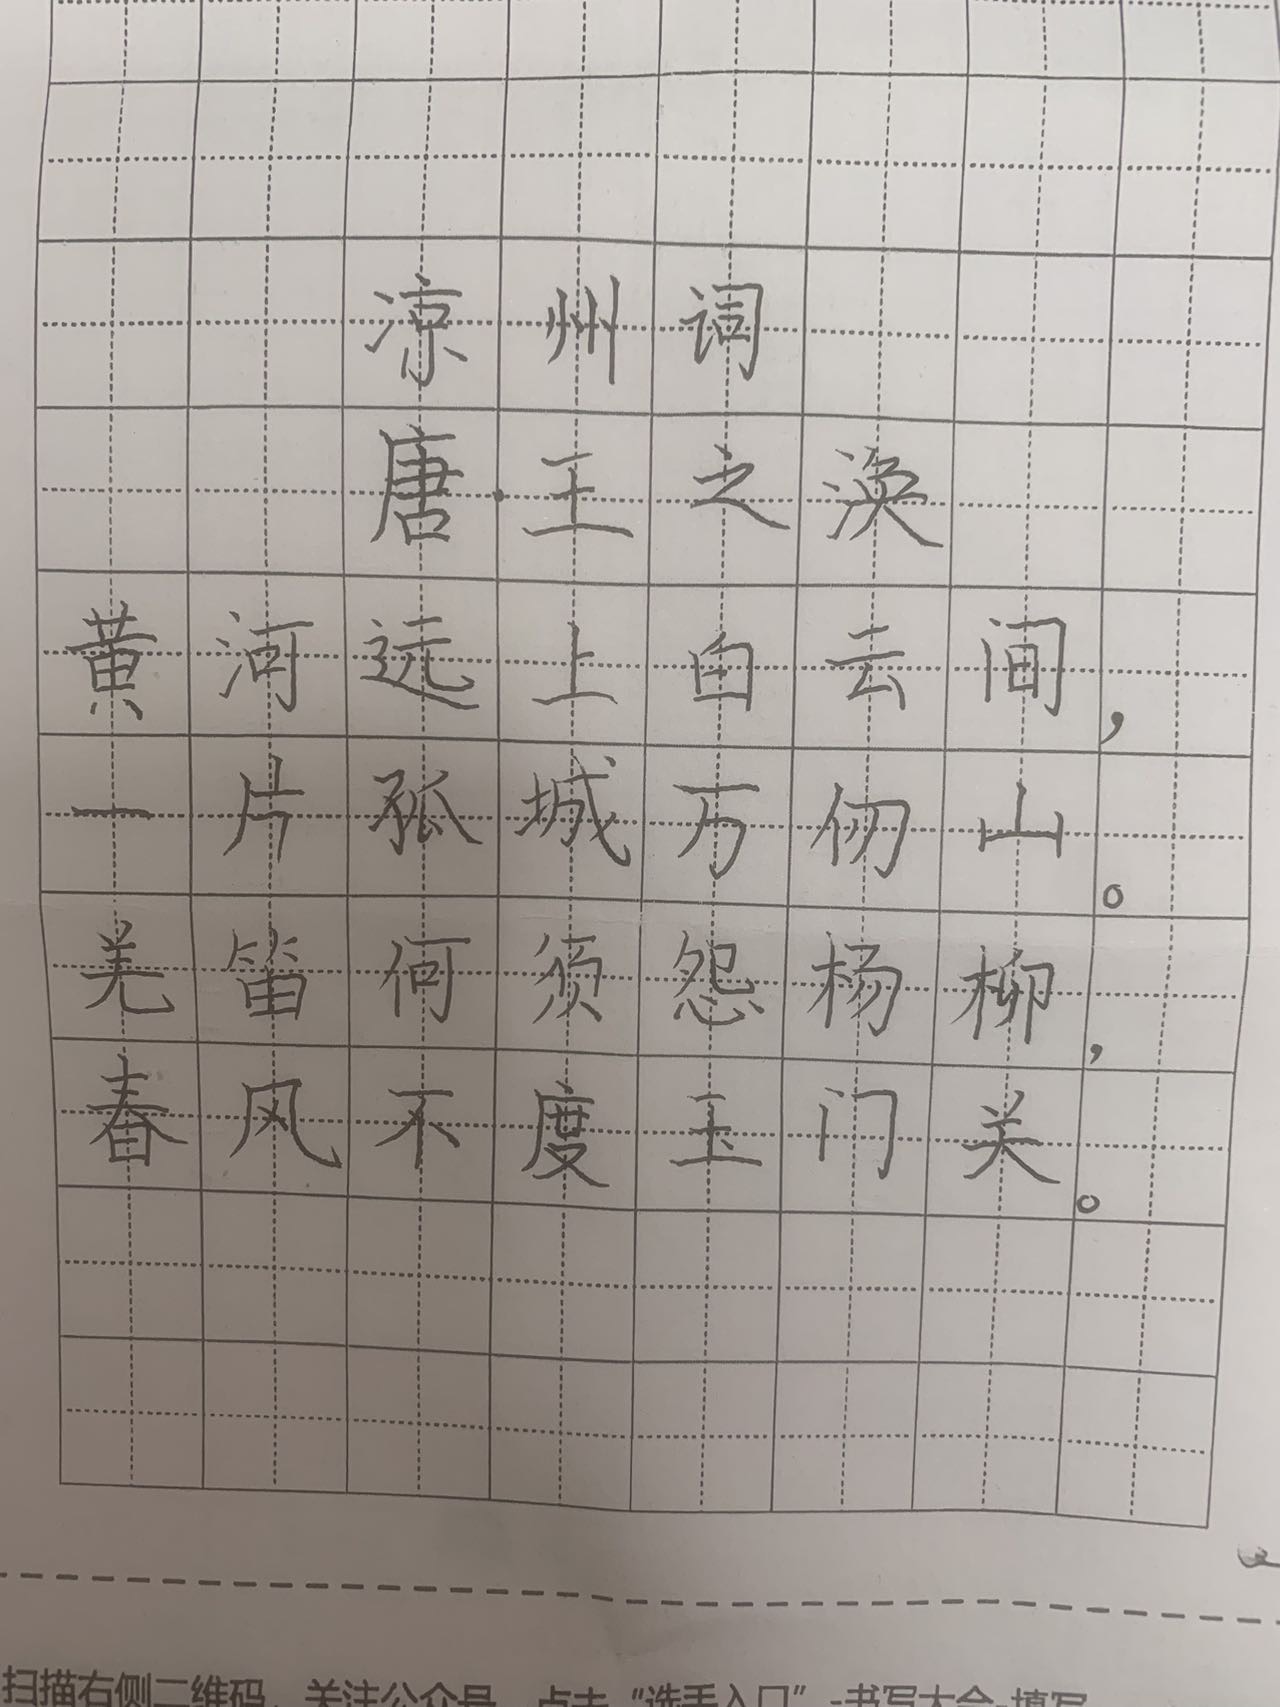 凉州词
唐·王之涣
黄河远上白云间，
一片孤城万仞山。
羌笛何须怨杨柳，
春风不度玉门关。
扫描右侧二维码，关注公众号，点击“选手入口”-书写大会-填写